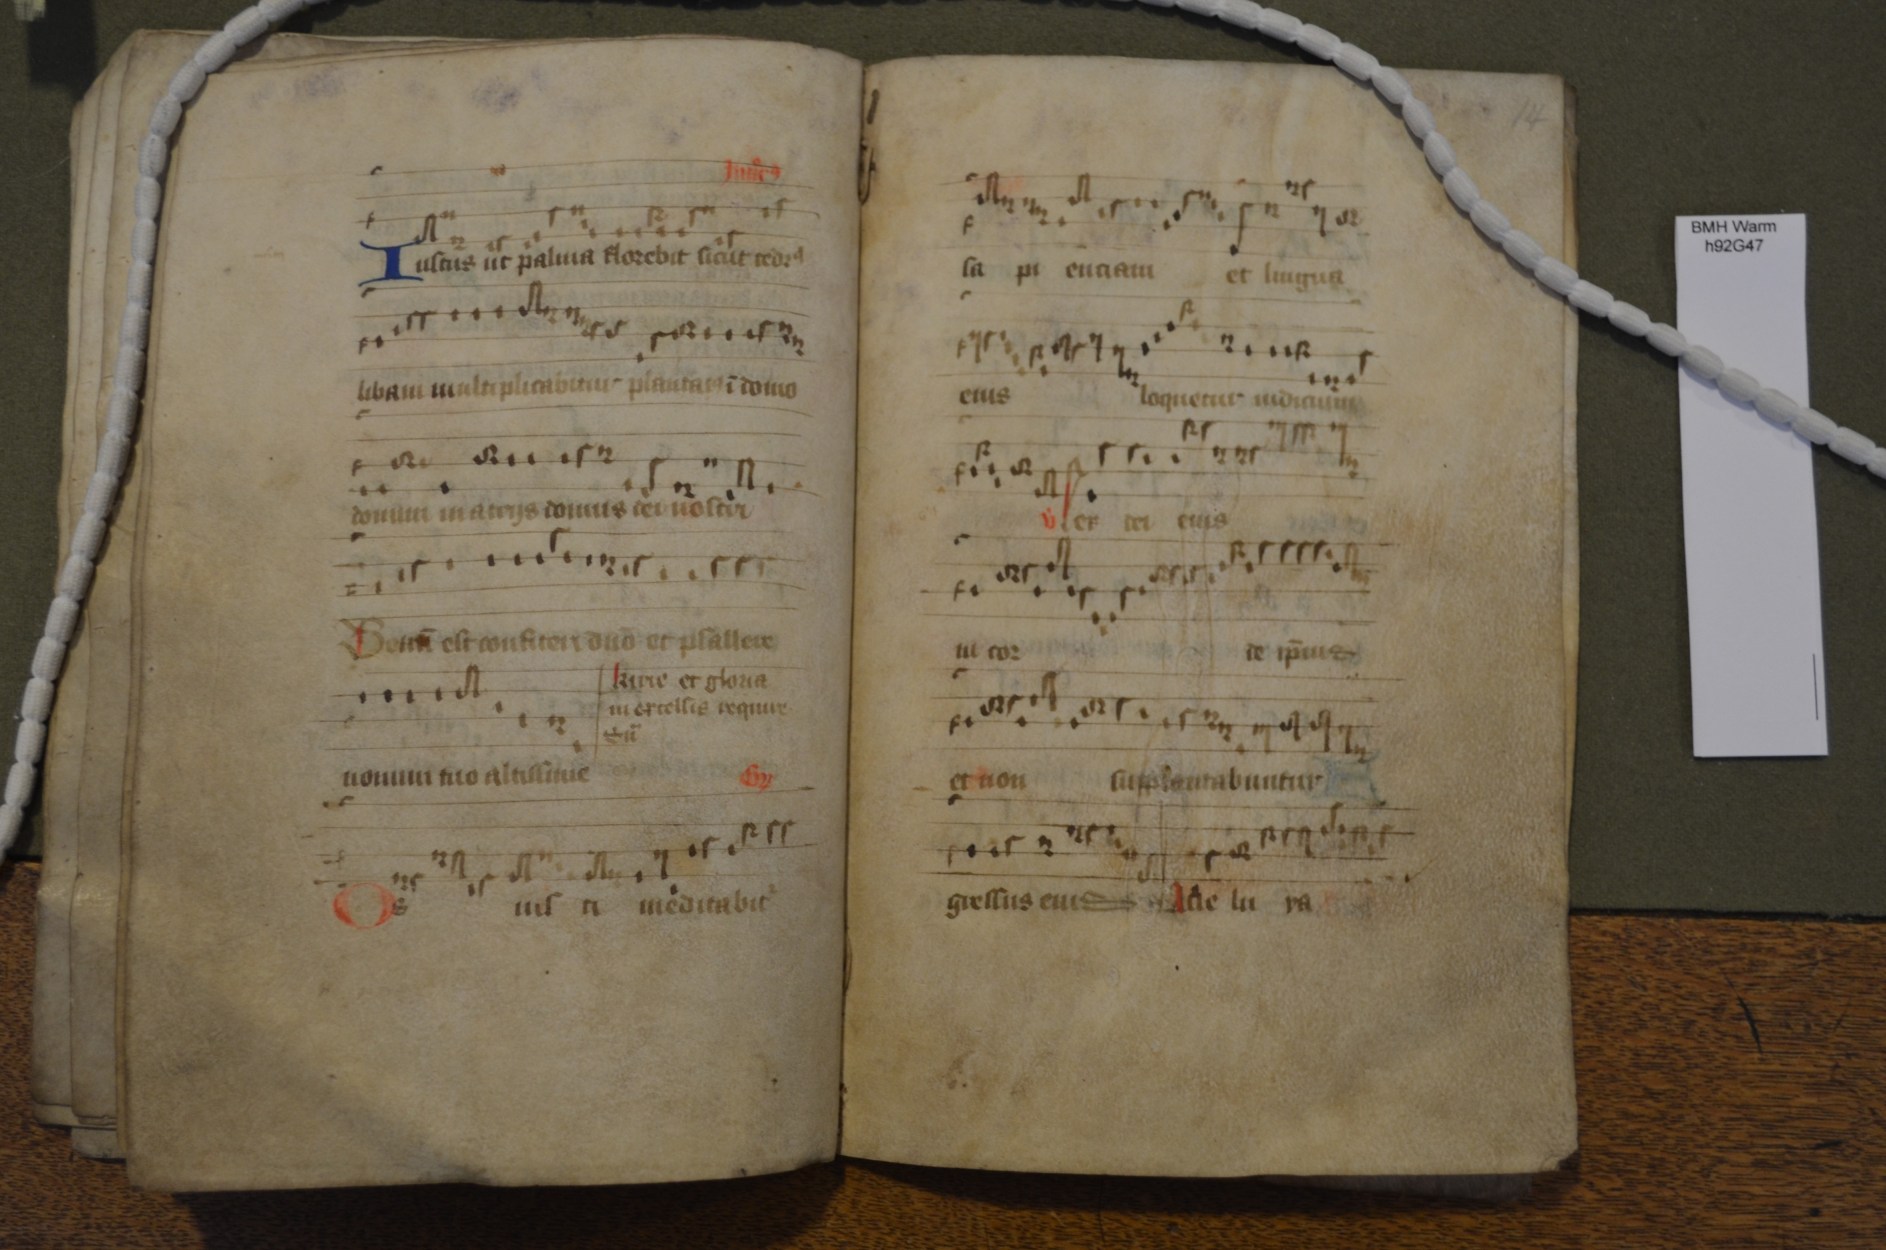 Iustus ut palma florebit sicut cedrꝰ
libani multiplicabitur plantatꝰ ī domo
domini in atrijs domus dei nostri
Bonū est confiteri dn̄o et psallere
kirie et gloria
in excelsis require
nomini tuo altissime
Os iusti meditabit
14
sa pi enciam et lingua
eius loquetur iudicium
V̄ lex dei eius
in cor de ip̄ius
et non supplantabuntur
gressus eius Alle lu ya
BMH Warm
h92G47